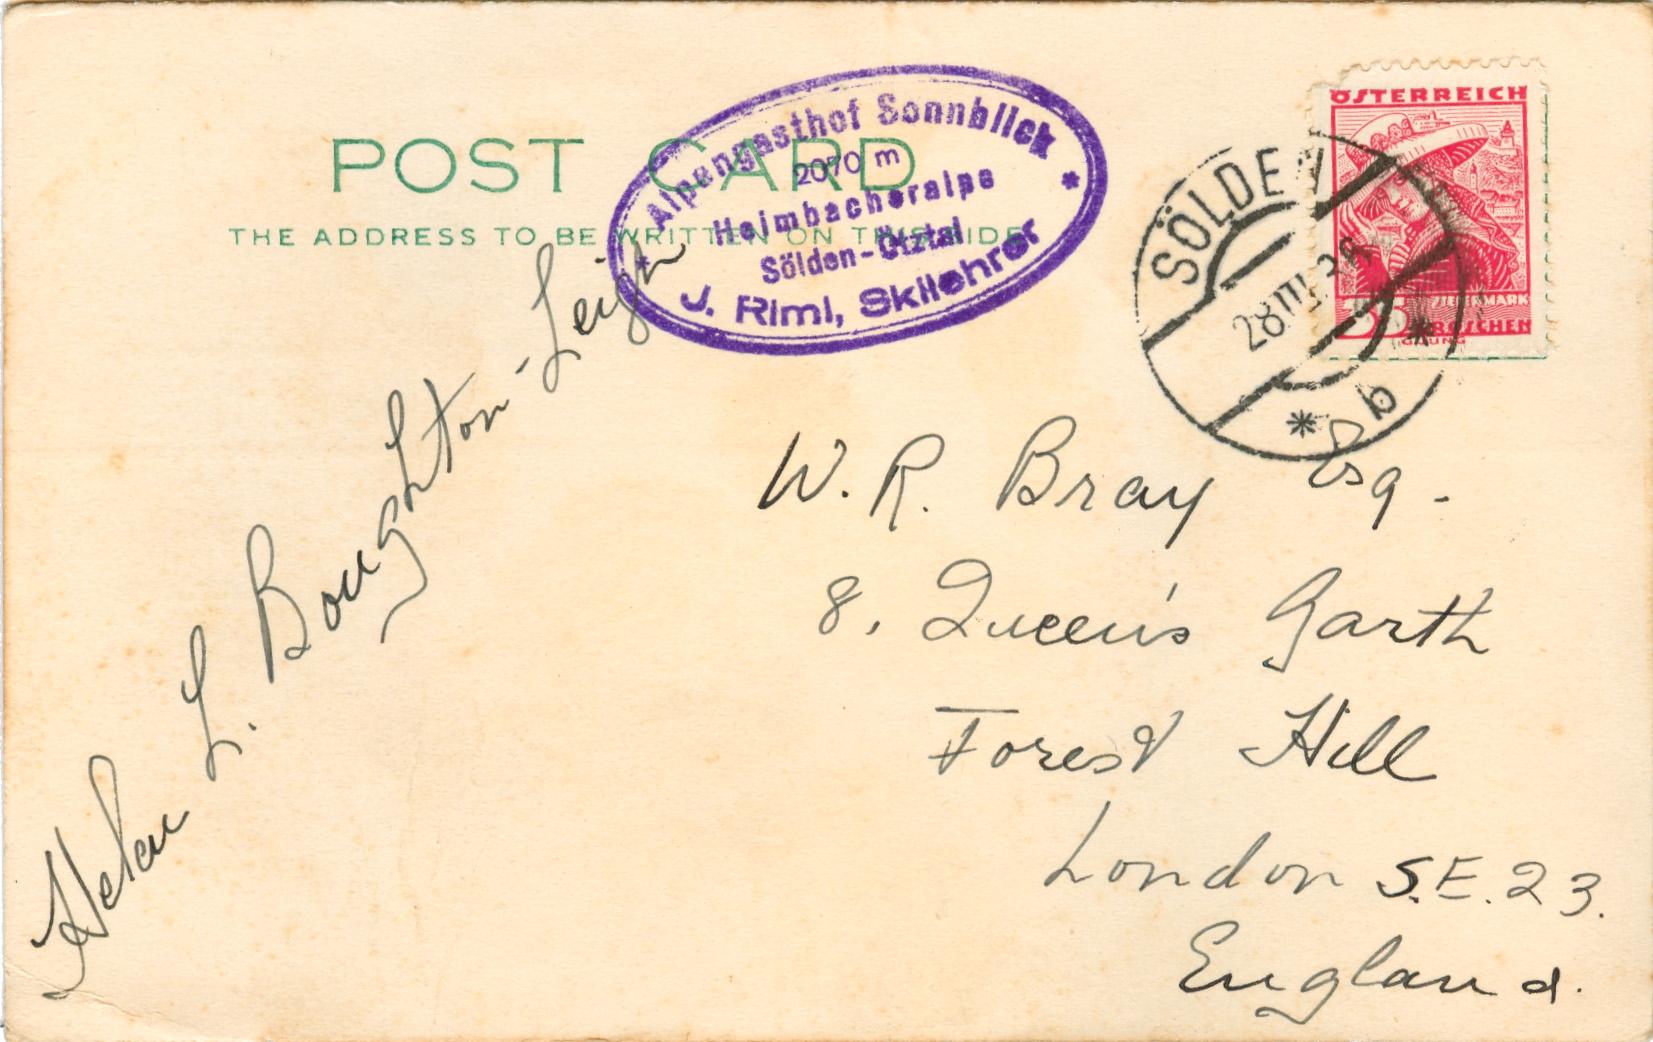 POST CARD
THE ADDRESS TO BE WRITTEN ON THIS SIDE
Alpengasthof Sonnblick
2070 m
Heimbacheralpe
Sölden-Ötztal
J. Riml, Skilehrer
ÖSTERREICH
STEIERMARK
GROSCHEN
SÖLDEN
28 III
* b
Helen L. Boughton-Leigh
W. R. Bray Esq.
8, Queen's Garth
Forest Hill
London S.E. 23.
England.